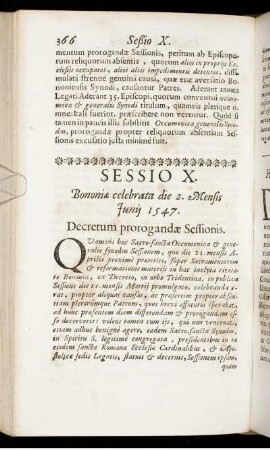 366 Sessio X.
mentum prorogandæ Sessionis, petitum ab Episcopo-
rum reliquorum absentia, quorum alios in proprijs Ec-
clesijs occupatos, alios alijs impedimentis detentos, dissi-
mulatâ strenuè genuinâ causâ, quæ erat aversatio Bo-
noniensis Synodi, causantur Patres. Aderant tamen
Legati. Aderant 35. Episcopi, quorum conventui œcume-
nica & generalis Synodi titulum, quamvis plerique o-
mnes Itali fuerint, præscribere non verentur. Quòd si
tamen in paucis illis subsistit Oecumenica generalis Syno-
dus, prorogandæ propter reliquorum absentiam Ses-
sionis excusatio justa minimè fuit.
SESSIO X.
Bononiæ celebrata die 2. Mensis
Junij 1547.
Decretum prorogandæ Sessionis.
QUamvis hæc Sacro-sancta Oecumenica & gene-
ralis Synodus Sessionem, quæ die 21. mensis A-
prilis proximè præteriti, super Sacramentorum
& reformationis materiis in hac inclyta civita-
te Bononia, ex Decreto, in urbe Tridentina, in publica
Sessione die 11. mensis Martij promulgato, celebranda e-
rat, propter aliquas causas, ac præsertim propter absen-
tiam plerorumque Patrum, quos brevi affuturos sperabat,
ad hunc præsentem diem differendam & prorogandam es-
se decreverit: volens tamen cum ijs, qui non venerunt,
etiam adhuc benignè agere, eadem Sacro-sancta Synodus,
in Spiritu S. legitimè congregata, præsidentibus in ea
eisdem sanctæ Romanæ Ecclesiæ Cardinalibus, & Apo-
stolicæ sedis Legatis, statuit & decernit, Sessionem ipsam,
quam